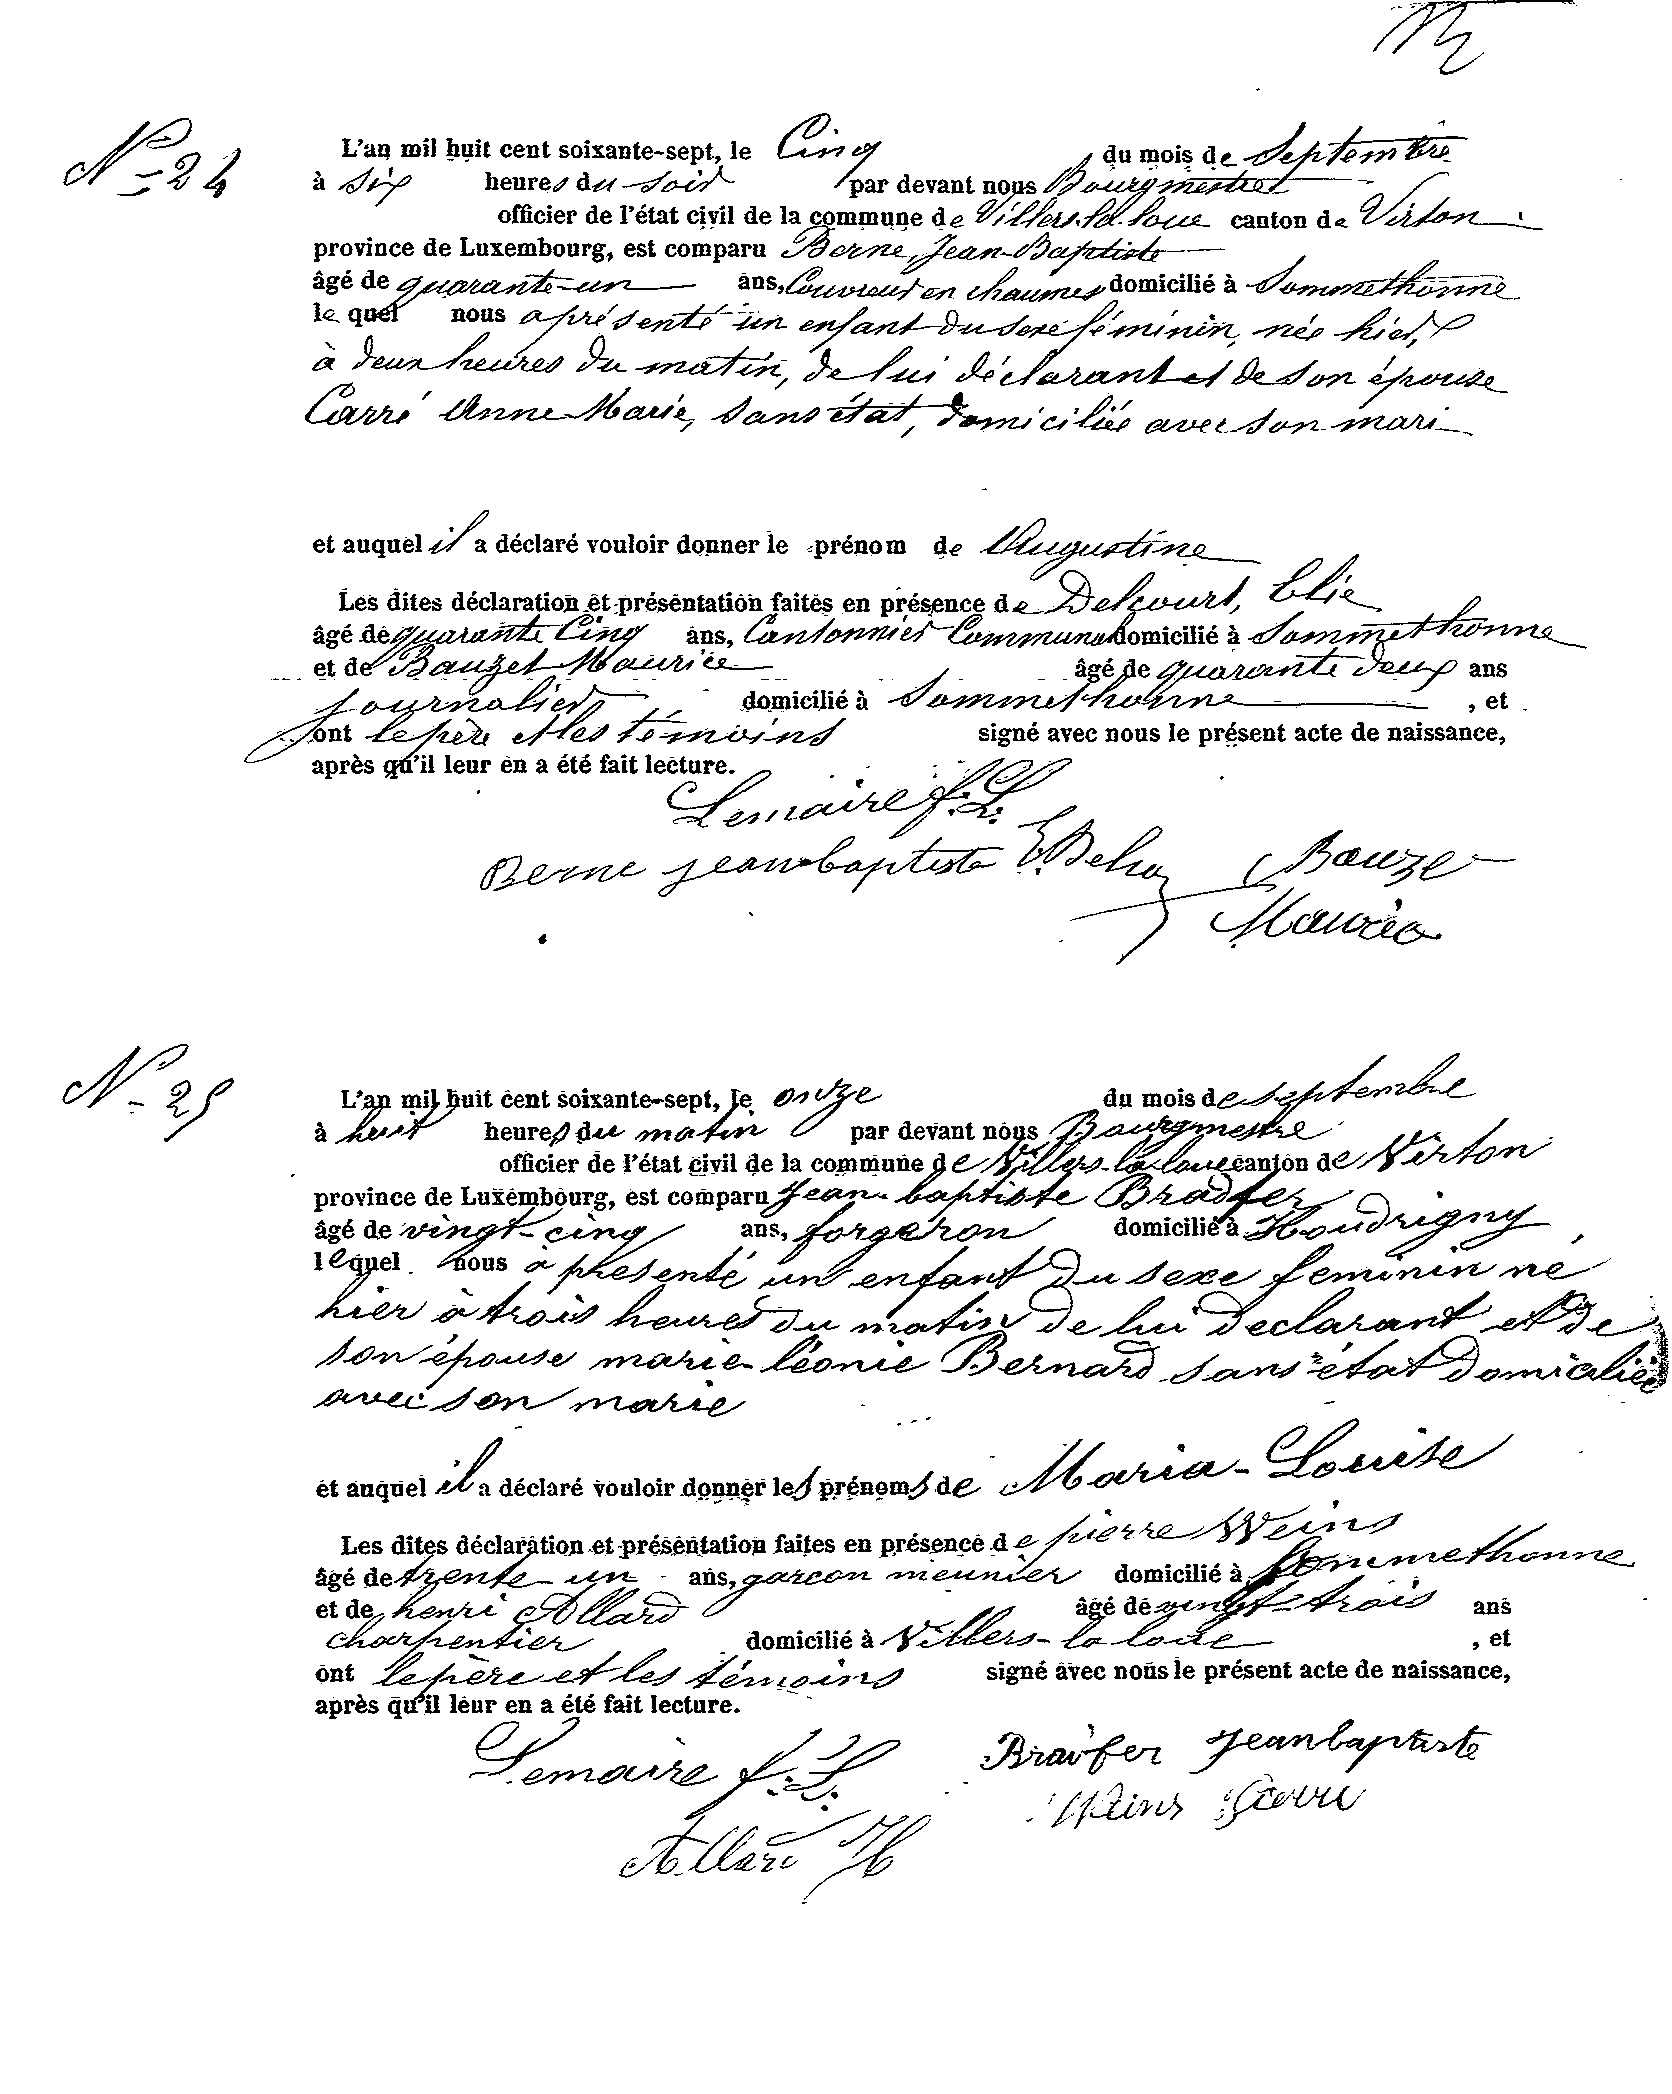 N° 24
L'an mil huit cent soixante-sept, le Cinq du mois de Septembre
à six heures du soir par devant nous Bourgmestre
officier de l'état civil de la commune de Villers-la-loue canton de Virton
province de Luxembourg, est comparu Berne, Jean-Baptiste
âgé de quarante-un ans, Couvreur en chaumes domicilié à Sommethonne
lequel nous a présenté un enfant du sexe féminin, née hier,
à deux heures du matin, de lui déclarant et de son épouse
Carré Anne-Marie, sans état, domiciliée avec son mari
et auquel il a déclaré vouloir donner le prénom de Augustine
Les dites déclaration et présentation faites en présence de Delcourt, Elie
âgé de quarante Cinq ans, Cantonnier Communal domicilié à Sommethonne
et de Bauzet Maurice âgé de quarante deux ans
journalier domicilié à Sommethonne, et
ont le père et les témoins signé avec nous le présent acte de naissance,
après qu'il leur en a été fait lecture.
Lemaire f. L.
Berne jean baptiste E. Delco Bauze
Maurice
N° 25
L'an mil huit cent soixante-sept, le onze du mois de septembre
à huit heures du matin par devant nous Bourgmestre
officier de l'état civil de la commune de Villers-la-loue canton de Virton
province de Luxembourg, est comparu Jean-baptiste Bradfer
âgé de vingt-cinq ans, forgeron domicilié à Houdrigny
lequel nous à présenté un enfant du sexe feminin né
hier à trois heures du matin de lui declarant et de
son épouse marie-léonie Bernard sans état domiciliée
avec son marie
et auquel il a déclaré vouloir donner les prénoms de Maria-Louise
Les dites déclaration et présentation faites en présence de pierre Weins
âgé de trente-un ans, garcon meunier domicilié à Sommethonne
et de henri Allard âgé de vingt-trois ans
charpentier domicilié à Villers-la loue, et
ont le père et les témoins signé avec nous le présent acte de naissance,
après qu'il leur en a été fait lecture.
Lemaire f. L. Bradfer Jeanbaptiste
Weins Pierre
Allard H